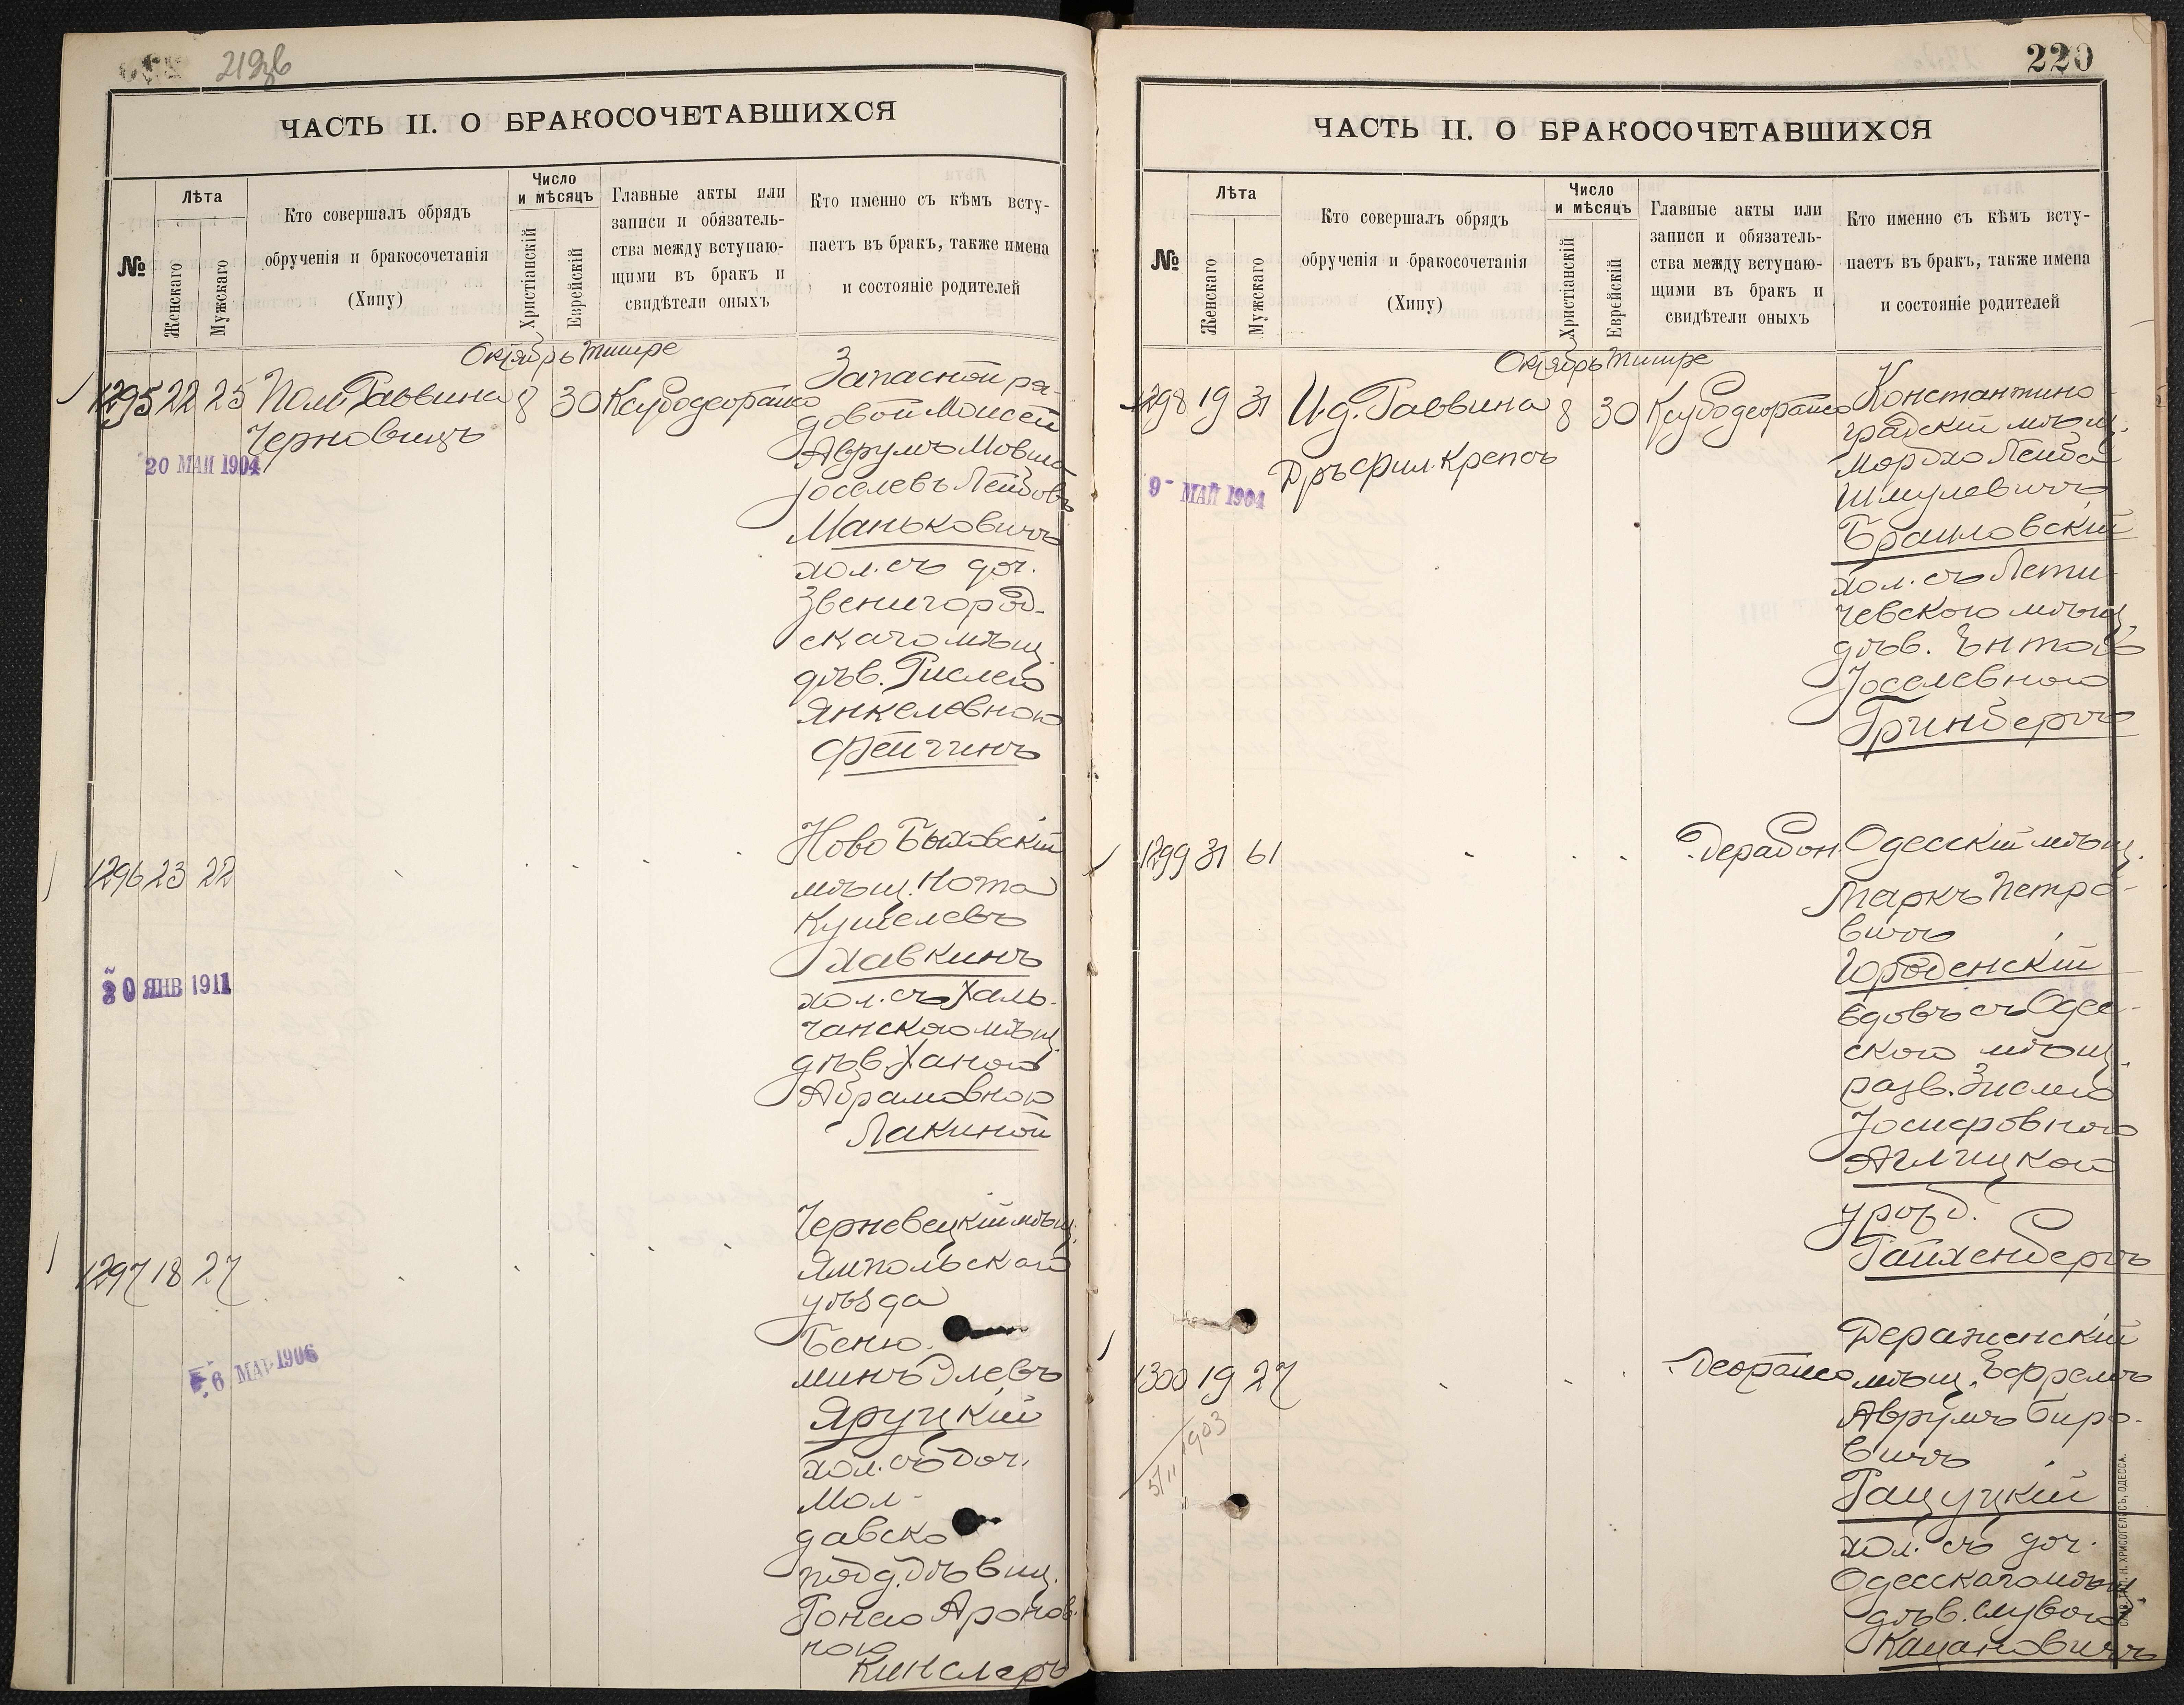 219об
ЧАСТЬ II. О БРАКОСОЧЕТАВШИХСЯ
№
Лѣта
Женскаго
Мужскаго
Кто совершалъ обрядъ
обрученія и бракосочетанія
(Хипу)
Число
и мѣсяцъ
Христіанскій
Еврейскій
Главные акты или
записи и обязатель-
ства между вступаю-
щими въ бракъ и
свидѣтели оныхъ
Кто именно съ кѣмъ всту-
паетъ въ бракъ, также имена
и состояніе родителей
Октябрь Тишре
1295 22 25 Пом. Раввина 8 30
Черновицъ
20 МАЙ 1904
Запасной ря-
довой Моисей
Аврумъ Мовша
Іоселевъ Лейбовъ
Маньковичъ
хол. съ доч.
Звенигород-
скаго мѣщ.
дѣв. Рислею
Янкелевною
Фейгинъ
1296 23 22
30 ЯНВ 1911
Ново Быховскій
мѣщ. Нота
Кушелевъ
Хавкинъ
хол. съ Халь-
чанскою мѣщ.
дѣв. Ханою
Абрамовною
Лакиной
1297 18 27
6 МАР 1906
Черневецкій мѣщ.
Ямпольскаго
уѣзда
Беню-
минъ Элевъ
Яруцкій
хол. съ доч.
Мол-
давско
подд. дѣвиц.
Гонею Аронов-
ною
Кинслеръ
220
ЧАСТЬ II. О БРАКОСОЧЕТАВШИХСЯ
№
Лѣта
Женскаго
Мужскаго
Кто совершалъ обрядъ
обрученія и бракосочетанія
(Хипу)
Число
и мѣсяцъ
Христіанскій
Еврейскій
Главные акты или
записи и обязатель-
ства между вступаю-
щими въ бракъ и
свидѣтели оныхъ
Кто именно съ кѣмъ всту-
паетъ въ бракъ, также имена
и состояніе родителей
Октябрь Тишре
1298 19 31 И.д. Раввина 8 30
Дръ Фил. Крепсъ
9 МАЙ 1904
Константино-
градскій мѣщ.
Мордхо Лейба
Шмулевичъ
Браиловскій
хол. съ Лети-
чевскою мѣщ.
дѣв. Энтою
Іоселевною
Гринбергъ
1299 31 61
Одесскій мѣщ.
Маркъ Петро-
вичъ
Городенскій
вдовъ съ Одес-
скою мѣщ.
разв. Зислею
Іосифовною
Аглицкой
урожд.
Райхенбергъ
1300 19 27
5/11 1903
Деражненскій
мѣщ. Эфремъ
Аврумъ Биро-
вичъ
Рашуцкій
хол. съ доч.
Одесскаго мѣщ.
дѣв. Слувою
Кацановичъ
ТИП. Н. ХРИСОГЕЛОСЪ, ОДЕССА.